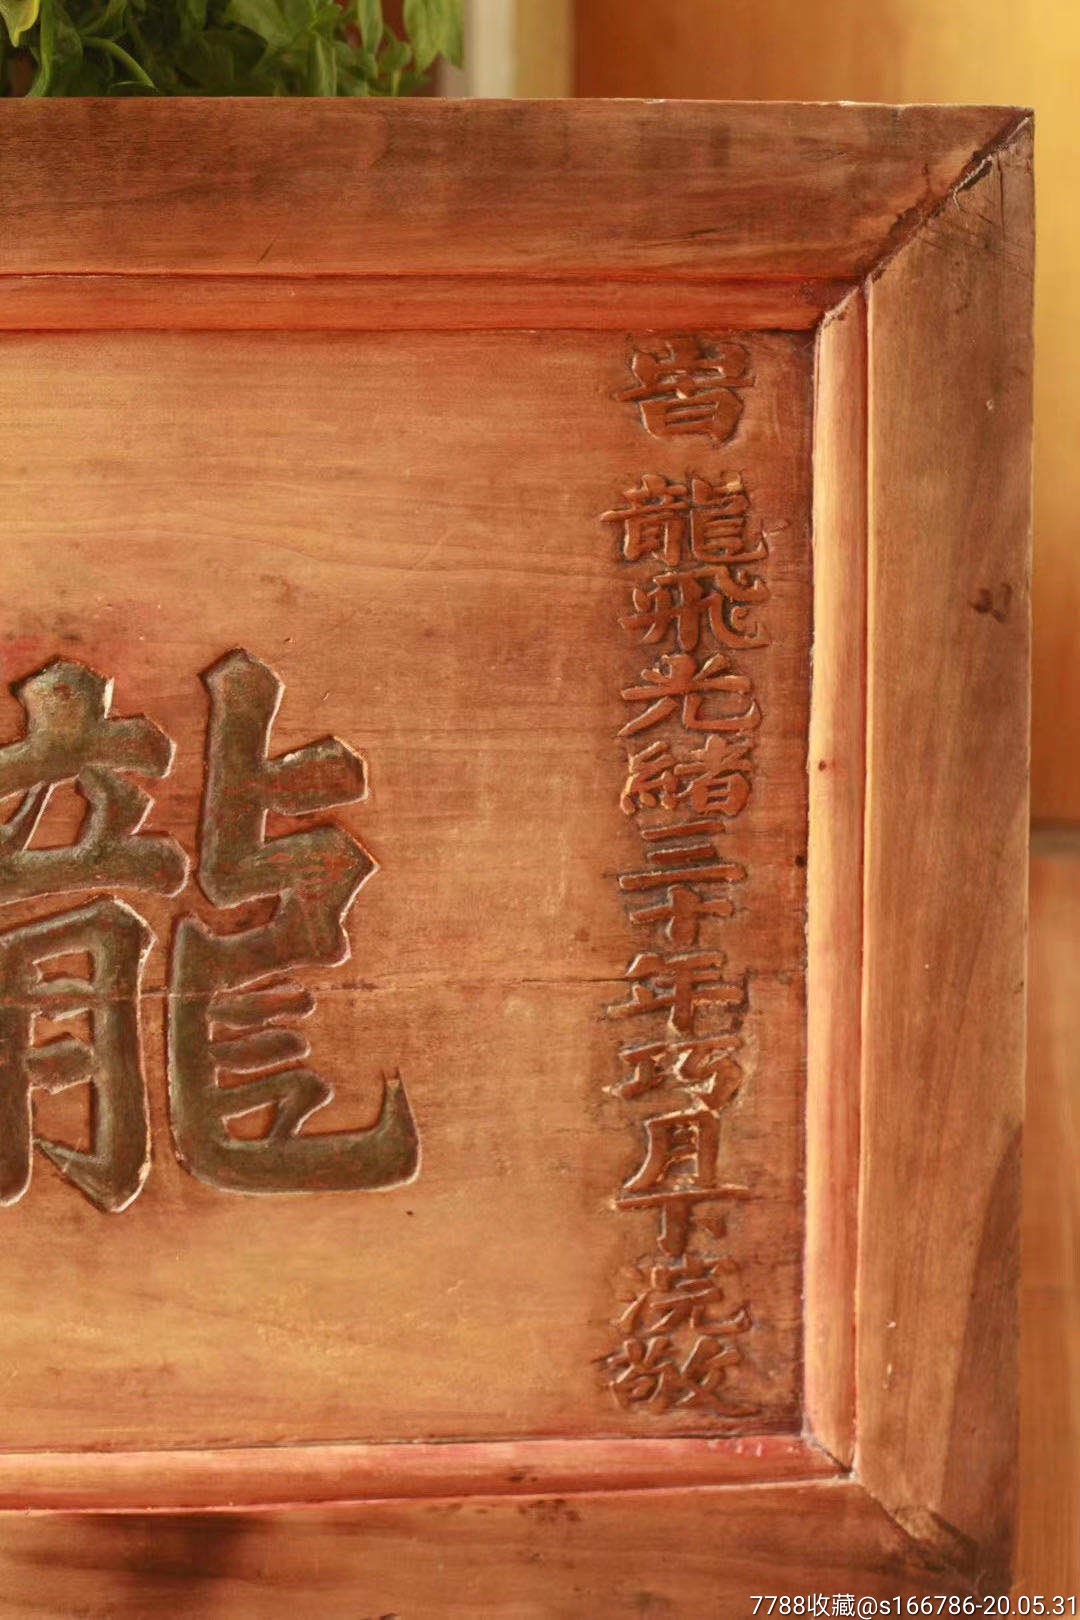 旹龍飛光緒三十年巧月下浣敬
龍
7788收藏@s166786-20.05.31